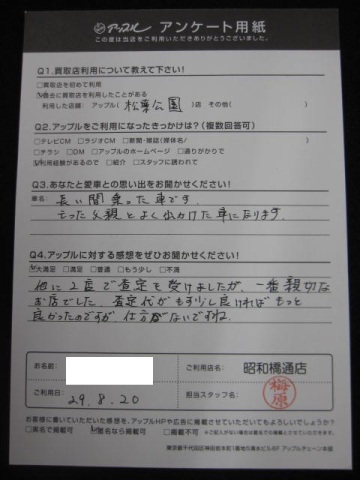 アップル アンケート用紙
この度は当店をご利用いただきありがとうございました。
Q1.買取店利用について教えて下さい!
□買取店を初めて利用
☑過去に買取店を利用したことがある
利用した店舗: アップル( 松葉公園 )店 その他( )
Q2.アップルをご利用になったきっかけは?(複数回答可)
□テレビCM □ラジオCM □新聞・雑誌(媒体名/ )
□チラシ □DM □アップルのホームページ □通りがかりで
☑利用経験があるので □紹介 □スタッフに誘われて
Q3.あなたと愛車との思い出をお聞かせください!
車名: 長い間乗った車です。
亡った父親とよく出かけた車になります。
Q4.アップルに対する感想をぜひお聞かせください!
☑大満足 □満足 □普通 □もう少し □不満
他に2店で査定も受けましたが、一番親切な
お店でした。査定代がもす少し良ければもっと
良かったのですが、仕方がないですね。
お名前:
ご利用店名: 昭和橋通店
ご利用日: 29.8.20
担当スタッフ名: 梅原
お客様に書いていただいた感想を、アップルHPや広告に掲載させていただいてもよろしいでしょうか?
□実名で掲載可 ☑匿名なら掲載可 □掲載不可 ※ご記入がない場合は匿名での掲載とさせていただきます。